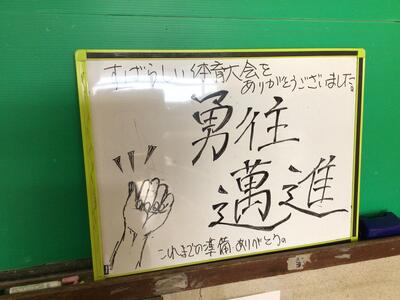 すばらしい体育大会を
ありがとうございました。
勇往
邁進
これまでの準備ありがとう。